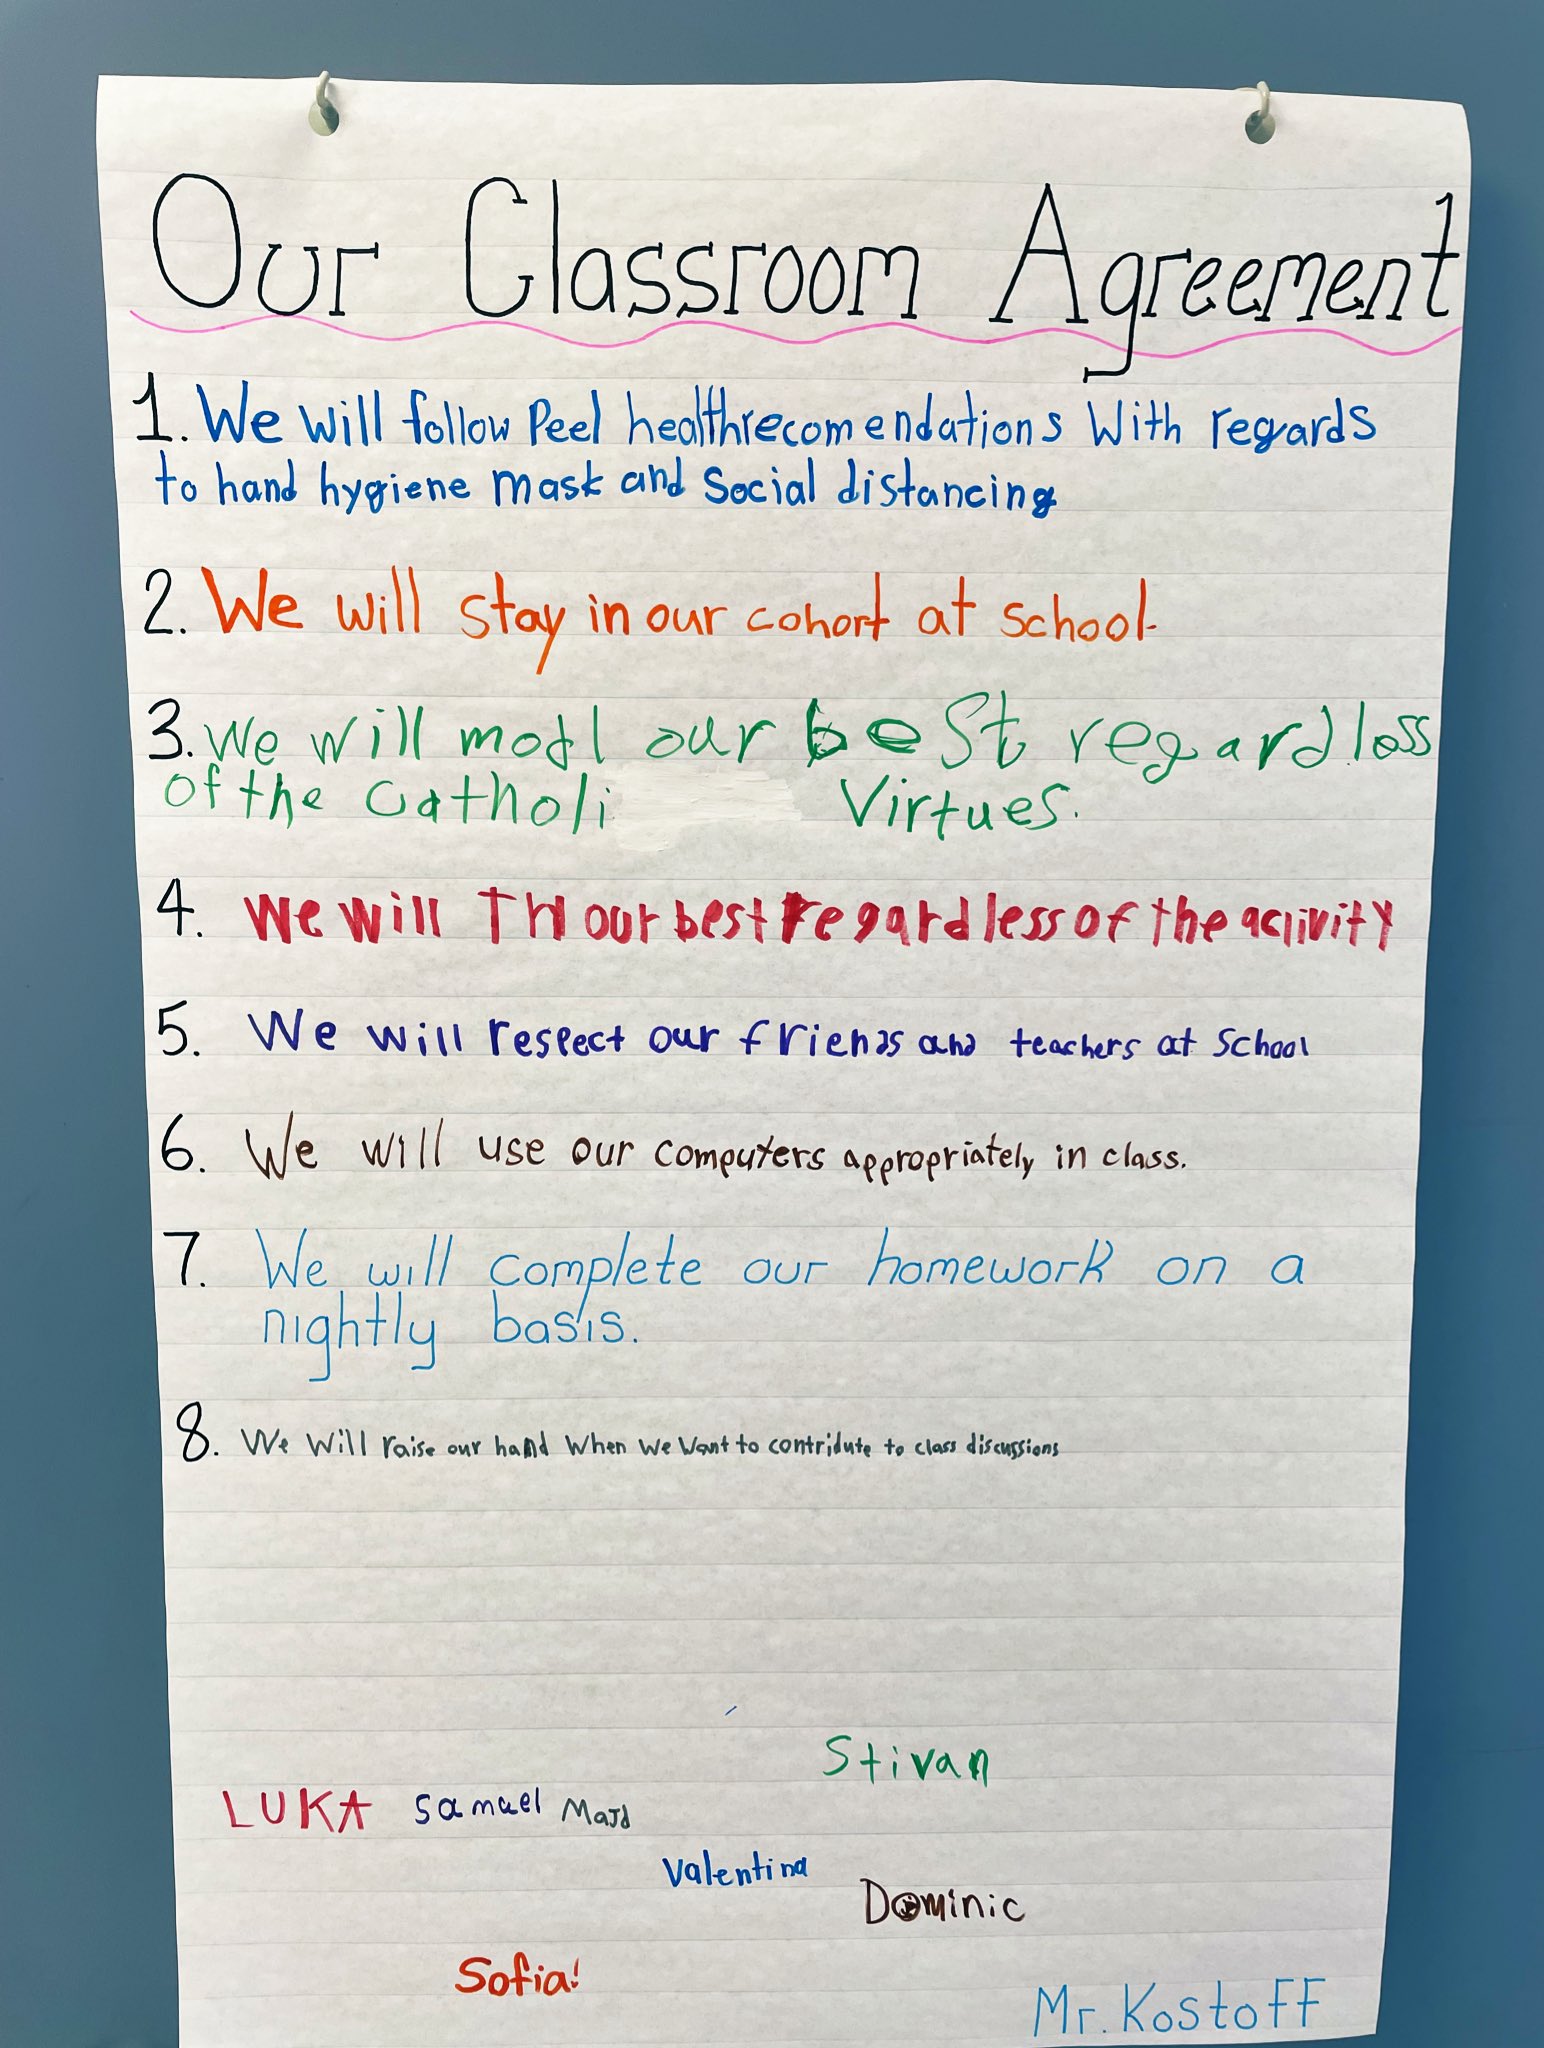 Our Classroom Agreement
1. We will follow Peel healthrecomendations With regards
to hand hygiene mask and Social distancing
2. We will stay in our cohort at school.
3. We will modl our best regardloss
of the Catholi Virtues.
4. We will TrY our best regardless of the activity
5. We will respect our friends and teachers at School
6. We will use our computers appropriately in class.
7. We will complete our homework on a
nightly basis.
8. We Will raise our hand When We Want to contridute to class discussions
Stivan
LUKA Samuel Majd
Valentina
Dominic
Sofia!
Mr. Kostoff